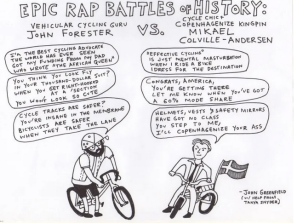 EPIC RAP BATTLES OF HISTORY:
VEHICULAR CYCLING GURU
JOHN FORESTER
VS.
CYCLE CHIC & COPENHAGENIZE KINGPIN
MIKAEL
COLVILLE-ANDERSEN
I'M THE BEST CYCLING ADVOCATE
THE WORLD HAS EVER SEEN
GOT MY FUNDING FROM MY DAD
WHO WROTE THE AFRICAN QUEEN
YOU THINK YOU LOOK FLY
IN YOUR THOUSAND-DOLLAR SUIT?
WHEN YOU GET RIGHT-HOOKED
AT A SECTION
YOU WON'T LOOK SO CUTE
CYCLE TRACKS ARE SAFER?
YOU'RE INSANE IN THE MEMBRANE
BICYCLISTS ARE SAFER
WHEN THEY TAKE THE LANE
"EFFECTIVE CYCLING"
IS JUST MENTAL MASTURBATION
WHEN I RIDE A BIKE
I DRESS FOR THE DESTINATION
CONGRATS, AMERICA,
YOU'RE GETTING THERE
LET ME KNOW WHEN YOU'VE GOT
A 50% MODE SHARE
HELMETS, VESTS & SAFETY MIRRORS
HAVE GOT NO CLASS
YOU STEP TO ME,
I'LL COPENHAGENIZE YOUR ASS
- JOHN GREENFIELD
(W/ HELP FROM
TANYA SNYDER)